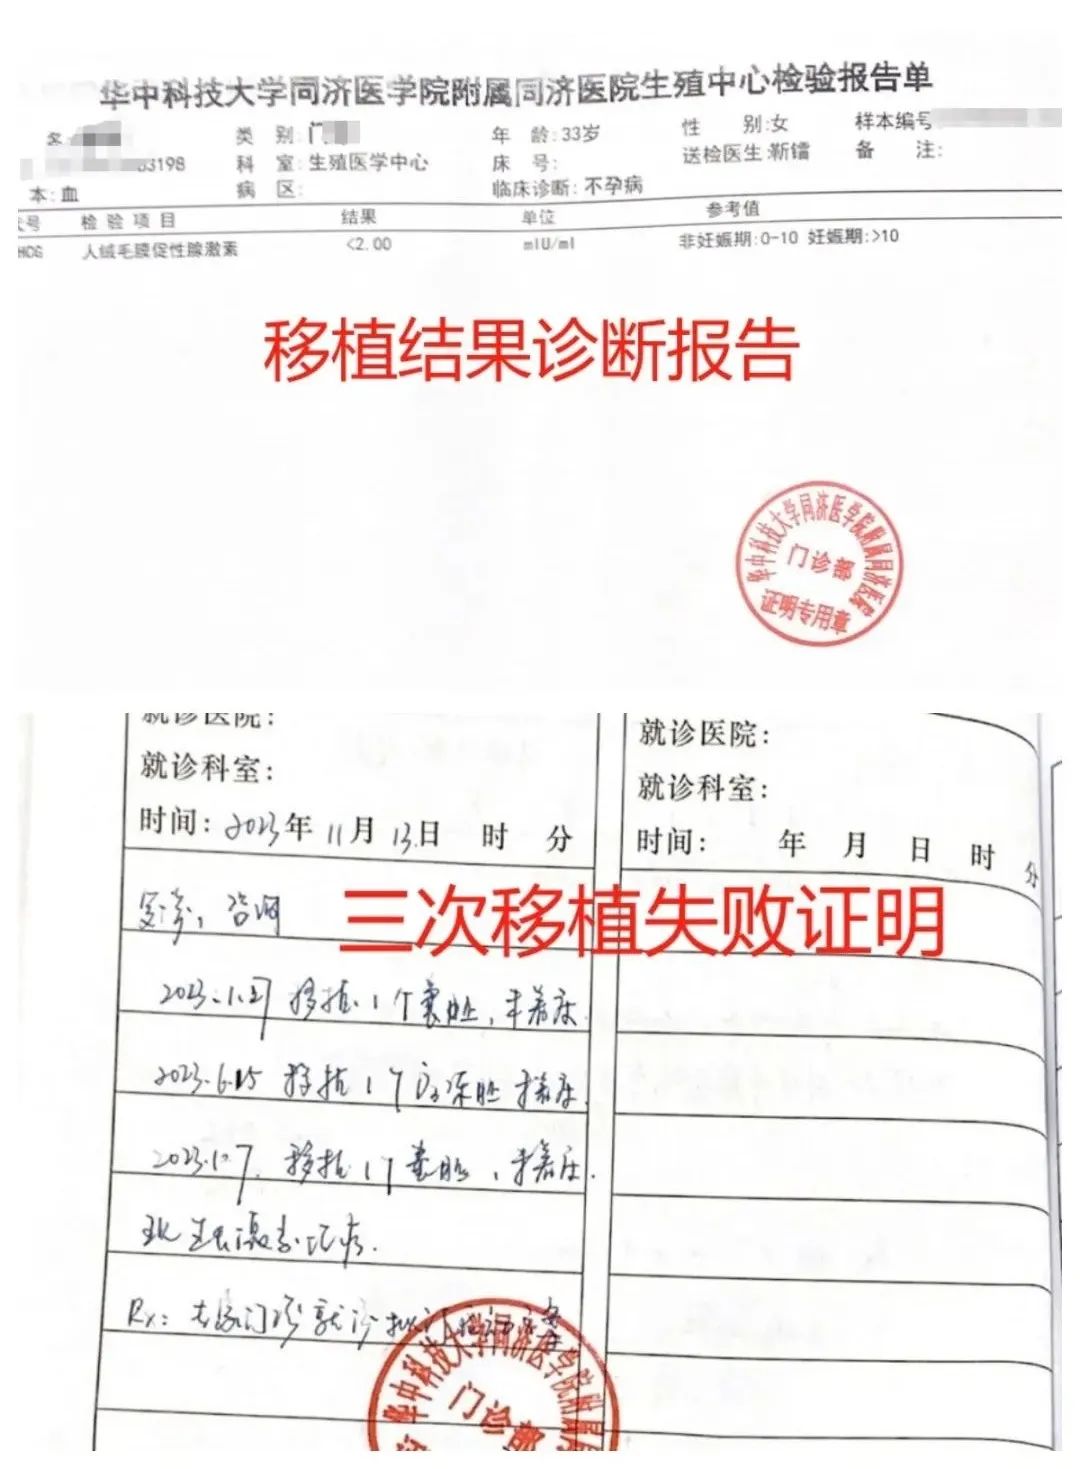 华中科技大学同济医学院附属同济医院生殖中心检验报告单
名: 类 别:门 年 龄:33岁 性 别:女 样本编号
03198 科 室:生殖医学中心 床 号: 送检医生:靳镭 备 注:
本:血 病 区: 临床诊断:不孕病
号 检验项目 结果 单位 参考值
HCG 人绒毛膜促性腺激素 <2.00 mIU/ml 非妊娠期:0-10 妊娠期:>10
移植结果诊断报告
华中科技大学同济医学院附属同济医院
门诊部
证明专用章
就诊医院:
就诊科室:
时间:2023年11月13日 时 分
就诊医院:
就诊科室:
时间: 年 月 日 时 分
三次移植失败证明
复诊,咨询
2023.1.27 移植1个囊胚,未着床
2023.6.15 移植1个 冻胚 未着床
2023.10.7 移植1个囊胚,未着床.
Rx: 专家门诊就诊
华中科技大学同济医学院附属
门诊部